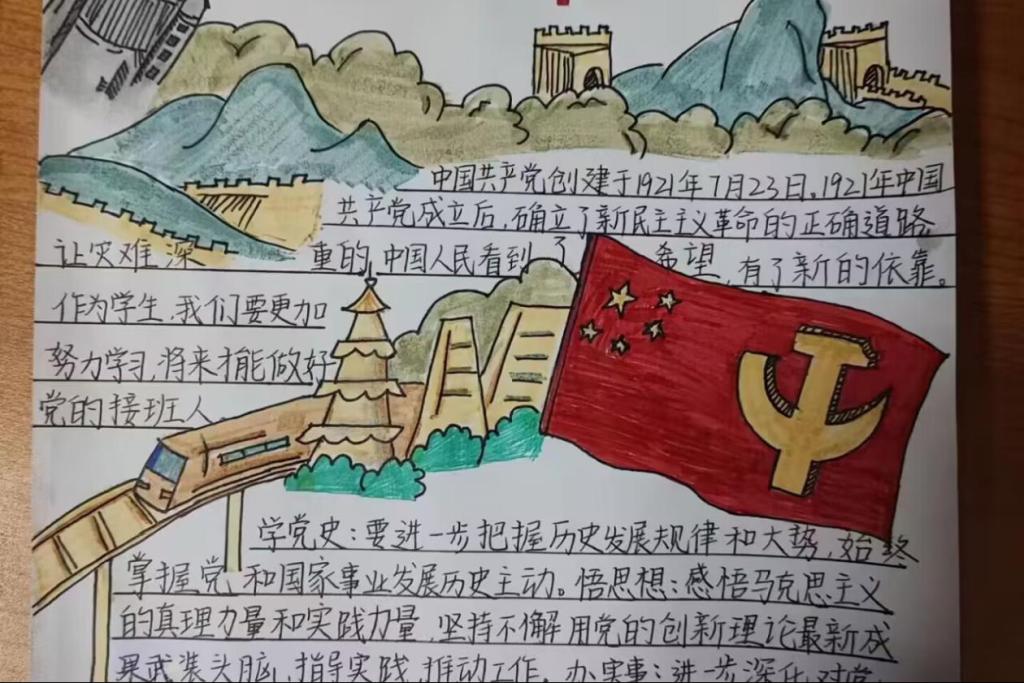 中国共产党创建于1921年7月23日，1921年中国
共产党成立后，确立了新民主主义革命的正确道路
让灾难深 重的，中国人民看到了 希望，有了新的依靠。
作为学生，我们要更加
努力学习，将来才能做好
党的接班人。
学党史：要进一步把握历史发展规律和大势，始终
掌握党、和国家事业发展历史主动。悟思想：感悟马克思主义
的真理力量和实践力量，坚持不懈用党的创新理论最新成
果武装头脑，指导实践，推动工作。办实事：进一步深化对党